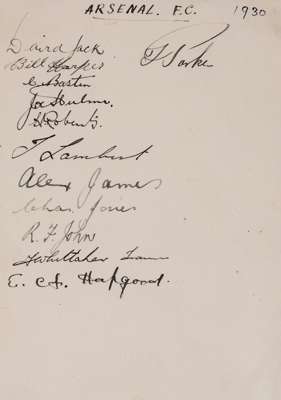 ARSENAL. F.C. 1930
David Jack.
T Parker
Bill Harper
C Bastin
Joe Hulme.
H Roberts.
J Lambert
Alex James
Chas. Jones
R. F. John
T Whittaker
E. A. Hapgood.